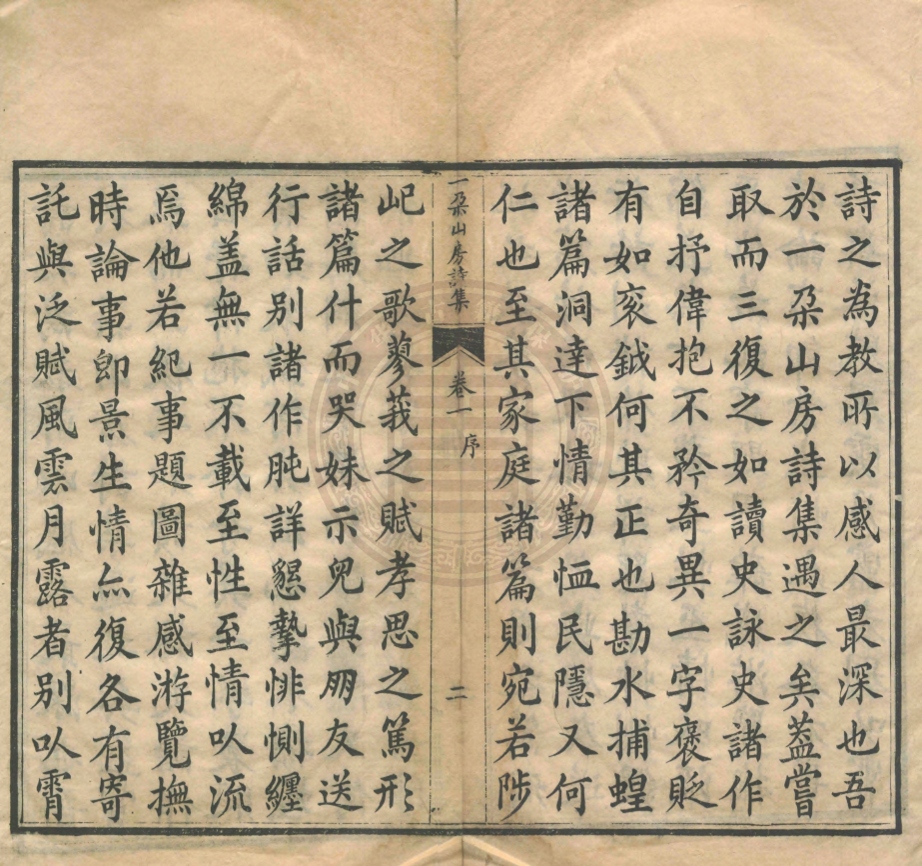 詩之為教所以感人最深也吾
於一朶山房詩集遇之矣葢嘗
取而三復之如讀史詠史諸作
自抒偉抱不矜奇異一字襃貶
有如衮鉞何其正也勘水捕蝗
諸篇洞達下情勤恤民隱又何
仁也至其家庭諸篇則宛若陟
一朶山房詩集
卷一
序
二
屺之歌蓼莪之賦孝思之篤形
諸篇什而哭妹示兒與朋友送
行話别諸作肫詳懇摯悱惻纏
綿盖無一不載至性至情以流
焉他若紀事題圖雜感游覽撫
時論事卽景生情亦復各有寄
託與泛賦風雲月露者别以霄